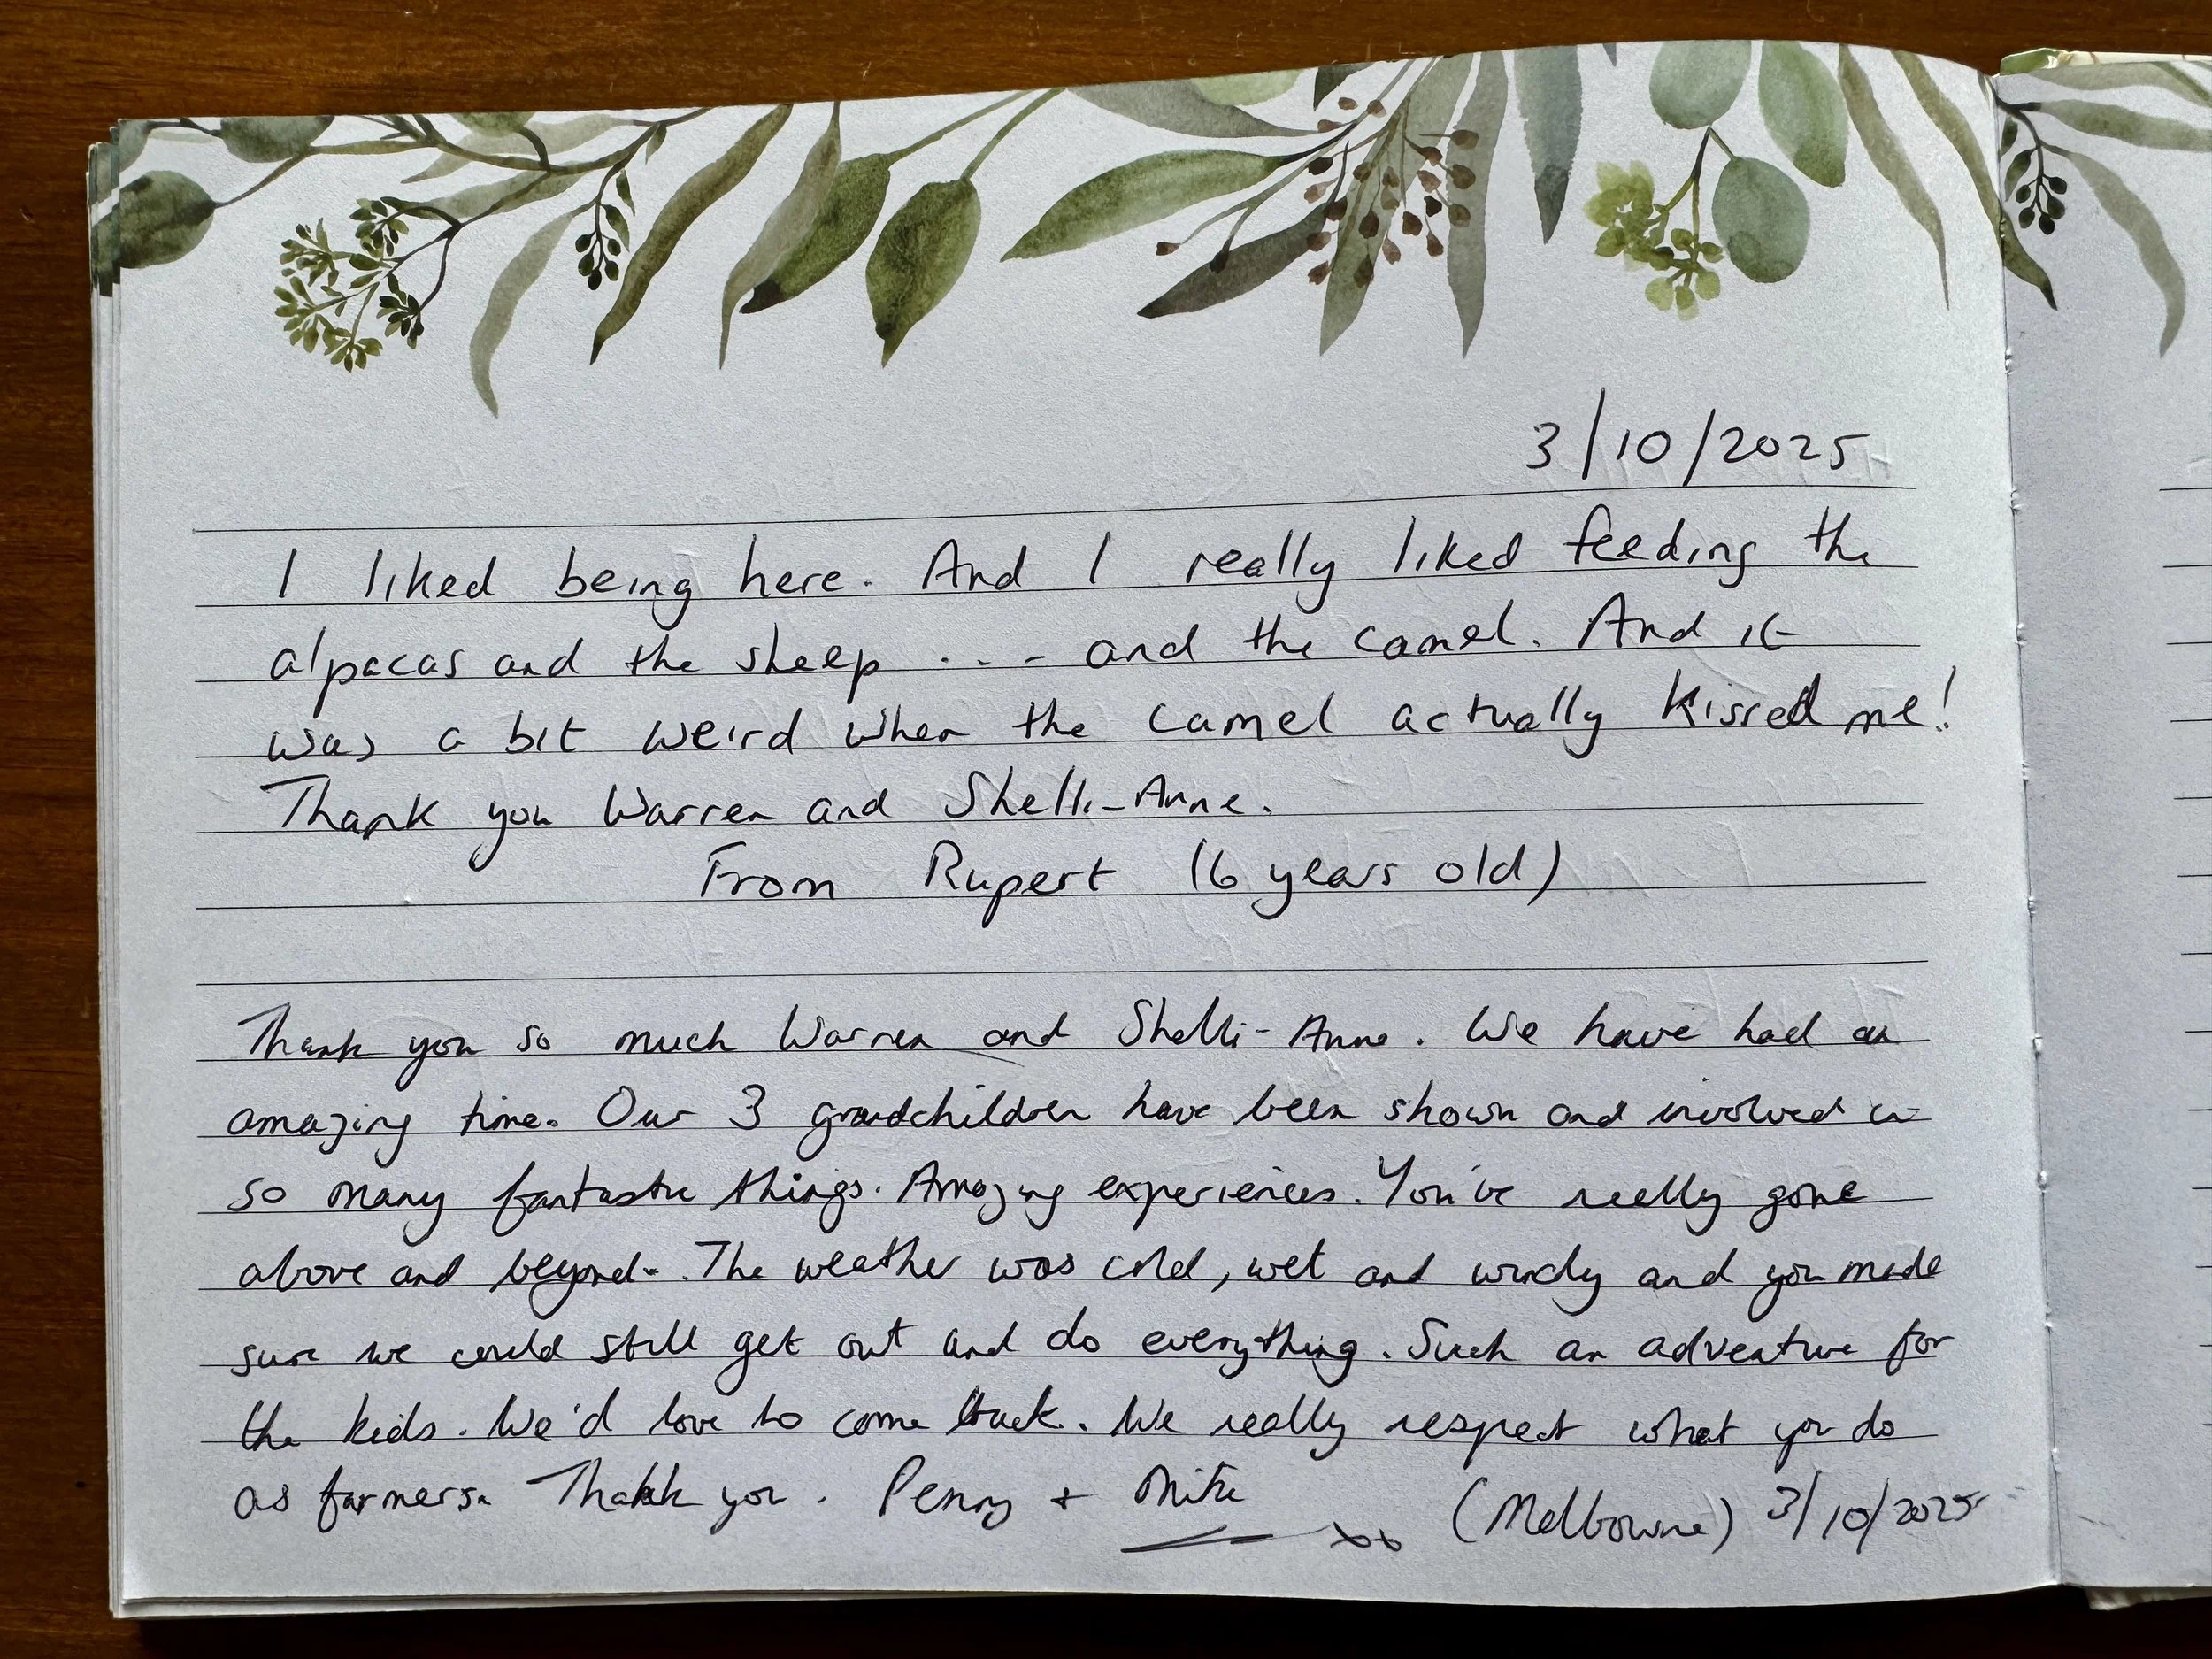 3/10/2025
I liked being here. And I really liked feeding the
alpacas and the sheep .... and the camel. And it
was a bit weird when the camel actually kissed me!
Thank you Warren and Shelli-Anne.
From Rupert (6 years old)
Thank you so much Warren and Shelli-Anne. We have had an
amazing time. Our 3 grandchildren have been shown and involved in
so many fantastic things. Amazing experiences. You've really gone
above and beyond. The weather was cold, wet and windy and you made
sure we could still get out and do everything. Such an adventure for
the kids. We'd love to come back. We really respect what you do
as farmers. Thank you. Penny + Mike xx (Melbourne) 3/10/2025